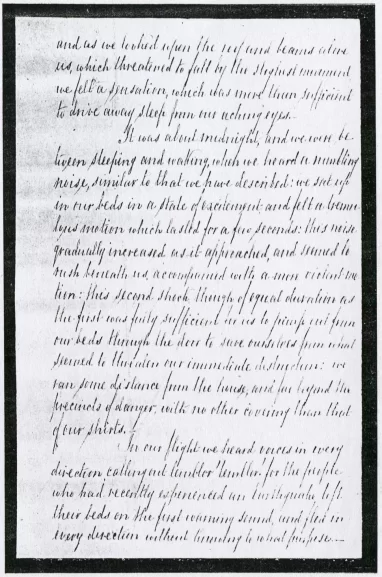 and as we looked upon the roof and beams above
us, which threatened to fall by the slightest movement
we felt a sensation, which was more than sufficient
to drive away sleep from our aching eyes.
It was about midnight, and we were be
tween sleeping and waking, when we heard a rumbling
noise, similar to that we have described: we sat up
in our beds in a state of excitement and felt a tremu
lous motion which lasted for a few seconds: this noise
gradually increased as it approached, and seemed to
rush beneath us, accompanied with a more violent mo
tion: this second shock though of equal duration as
the first was fully sufficient for us to jump out from
our beds through the door to save ourselves from what
seemed to threaten our immediate destruction: we
ran some distance from the house, and far beyond the
precincts of danger, with no other covering than that
of our shirts.
In our flight we heard voices in every
direction calling out temblor temblor, for the people
who had recently experienced an Earthquake left
their beds on the first warning sound, and fled in
every direction without knowing to what purpose